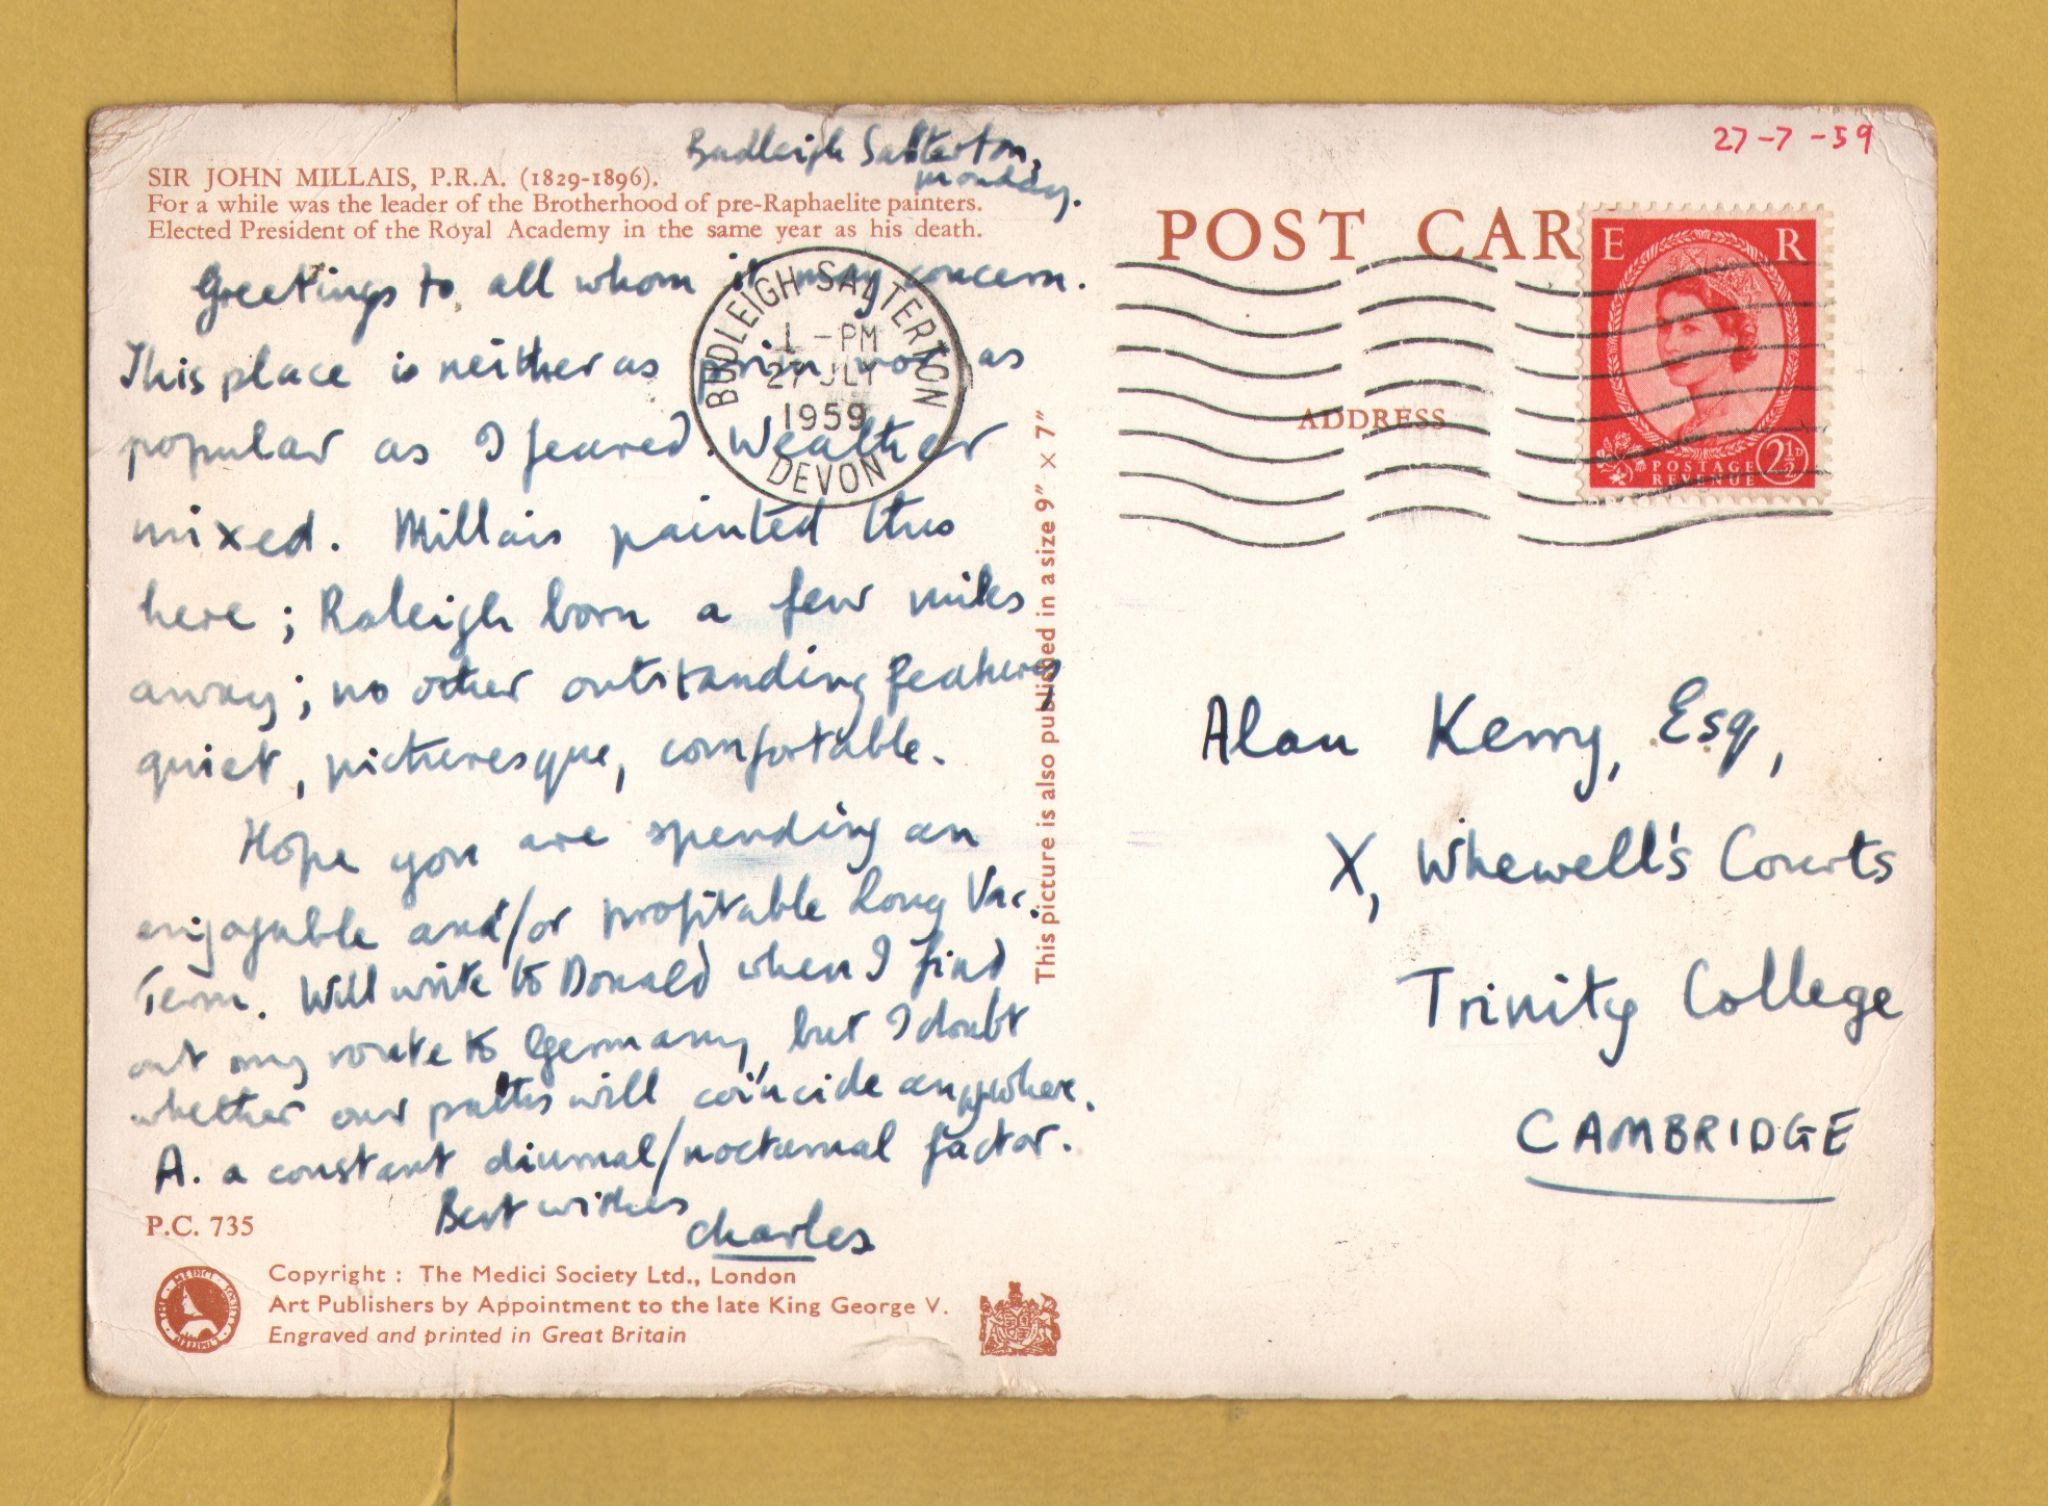 27-7-59
Budleigh Salterton,
Monday.
SIR JOHN MILLAIS, P.R.A. (1829-1896).
For a while was the leader of the Brotherhood of pre-Raphaelite painters.
Elected President of the Royal Academy in the same year as his death.
Greetings to all whom it may concern.
This place is neither as prim nor as
popular as I feared. Weather
mixed. Millais painted this
here; Raleigh born a few miles
away; no other outstanding features,
quiet, picturesque, comfortable.
Hope you are spending an
enjoyable and/or profitable Long Vac.
Term. Will write to Donald when I find
out my route to Germany, but I doubt
whether our paths will coïncide anywhere.
A. a constant diurnal/nocturnal factor.
Best wishes
Charles
P.C. 735
THE MEDICI SOCIETY LIMITED
Copyright : The Medici Society Ltd., London
Art Publishers by Appointment to the late King George V.
Engraved and printed in Great Britain
This picture is also published in a size 9″ × 7″
BUDLEIGH SALTERTON
1 - PM
27 JLY
1959
DEVON
POST CAR
ADDRESS
E R
POSTAGE
REVENUE
2½D
Alan Kerry, Esq,
X, Whewell's Courts
Trinity College
CAMBRIDGE